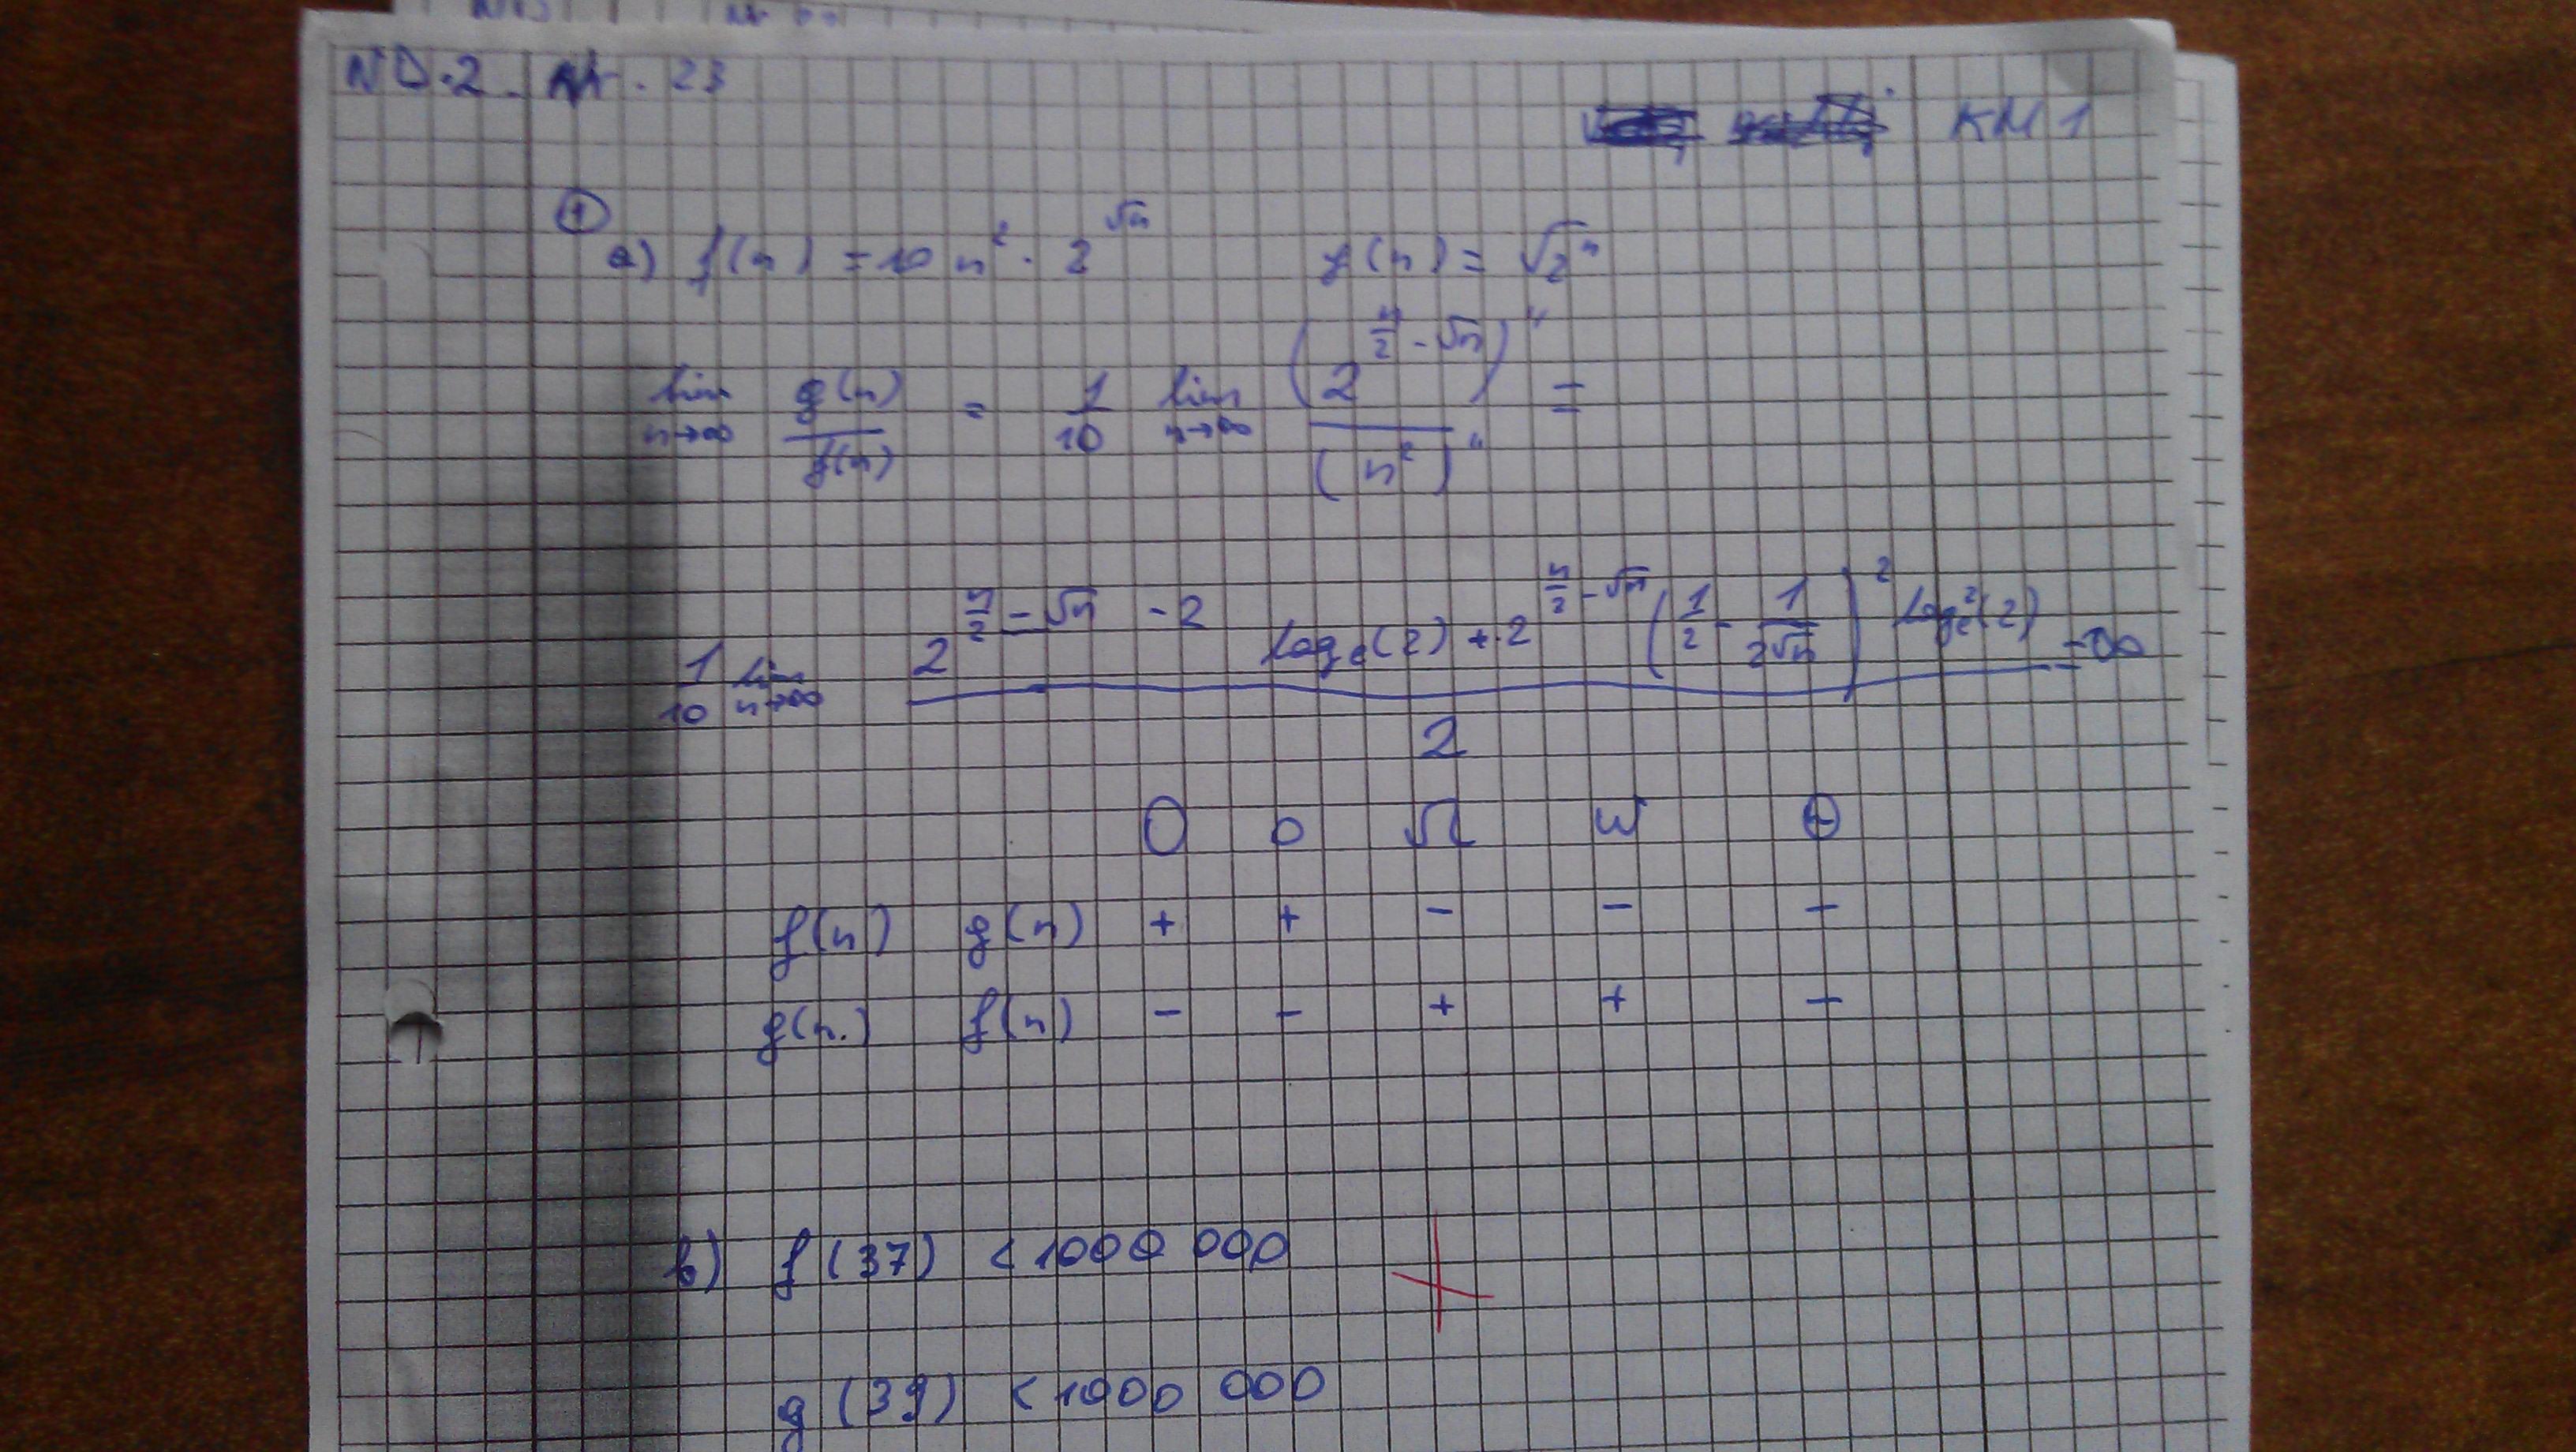 ND.2. Nr. 23
KM1
①
a) f(n) = 10 n² · 2^√n g(n) = √2^n
lim n→∞ g(n)/f(n) = 1/10 lim n→∞ (2^(n/2 - √n))'' / (n²)'' =
1/10 lim n→∞ (2^(n/2 - √n - 2) log_e(2) + 2^(n/2 - √n) (1/2 - 1/(2√n))² log_e²(2)) / 2 = ∞
O o Ω ω Θ
f(n) g(n) + + - - -
g(n) f(n) - - + + -
b) f(37) < 1000 000
g(39) < 1000 000